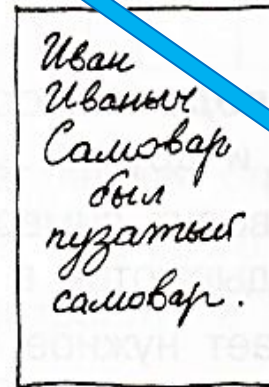 Иван
Иваныч
Самовар
был
пузатый
самовар.